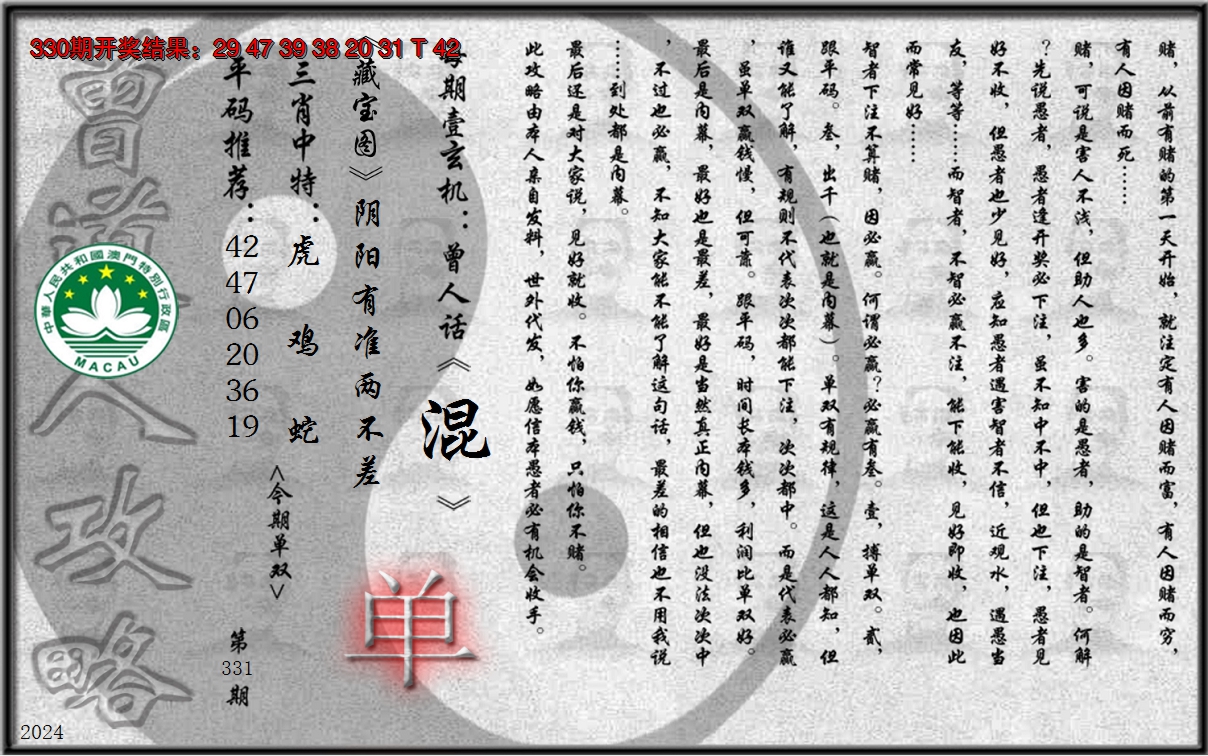 330期开奖结果：29 47 39 38 20 31 T 42
赌，从前有赌的第一天开始，就注定有人因赌而富，有人因赌而穷，
有人因赌而死……
赌，可说是害人不浅，但助人也多。害的是愚者，助的是智者。何解
？先说愚者，愚者逢开奖必下注，虽不知中不中，但也下注，愚者见
好不收，但愚者也少见好，应知愚者遇害智者不信，近观水，遇愚当
友，等等……而智者，不智必赢不注，能下能收，见好即收，也因此
而常见好……
智者下注不算赌，因必赢。何谓必赢？必赢有叁。壹，搏单双。贰，
跟平码。叁，出千（也就是内幕）。单双有规律，这是人人都知，但
谁又能了解，有规则不代表次次都能下注，次次都中。而是代表必赢
，虽单双赢钱慢，但可靠。跟平码，时间长本钱多，利润比单双好。
最后是内幕，最好也是最差，最好是当然真正内幕，但也没法次次中
，不过也必赢，不知大家能不能了解这句话，最差的相信也不用我说
……到处都是内幕。
最后还是对大家说，见好就收。不怕你赢钱，只怕你不赌。
此攻略由本人亲自发料，世外代发，如愿信本愚者必有机会收手。
每期壹玄机：曾人话《混》
《藏宝图》阴阳有准两不差
单
三肖中特：虎 鸡 蛇
<今期单双>
平码推荐：42 47 06 20 36 19
第331期
曾道人攻略
中華人民共和國澳門特別行政區
MACAU
2024